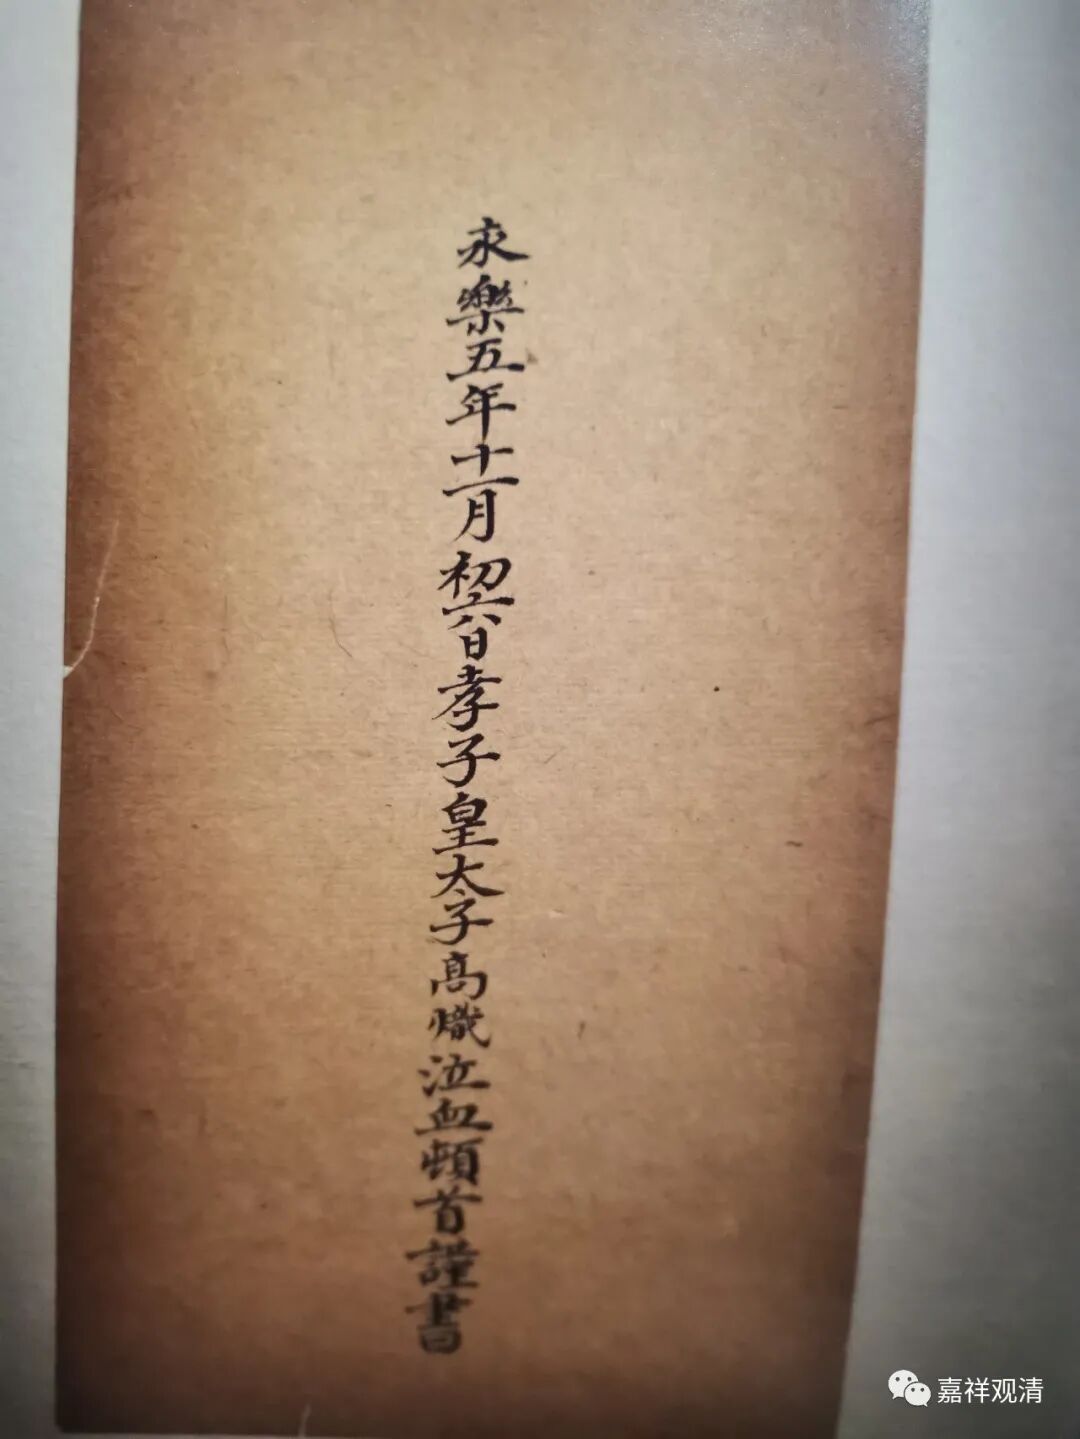 永樂五年十一月初六日孝子皇太子高熾泣血頓首謹書
嘉祥观清